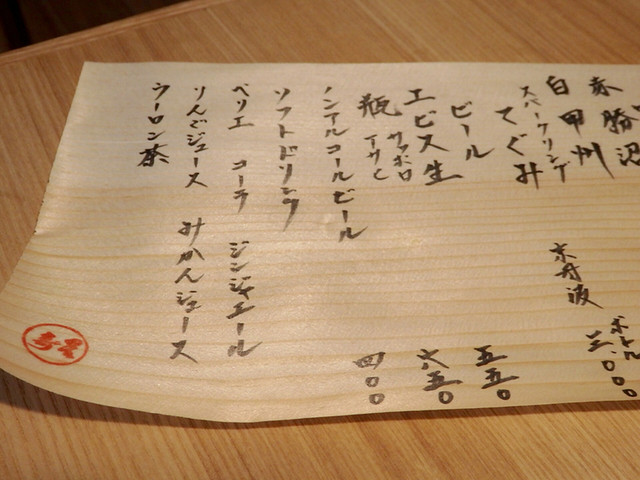 赤 勝沼
白 甲州 ボトル
スパークリング てぐみ 京丹波
ビール
エビス生 五五〇
瓶 サッポロ アサヒ 六五〇
ノンアルコールビール 四〇〇
ソフトドリンク
ペリエ コーラ ジンジャエール
りんごジュース みかんジュース
ウーロン茶